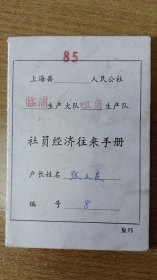 85
上海县 人民公社
临浦生产大队咀角生产队
社员经济往来手册
户长姓名 张三良
编号 8